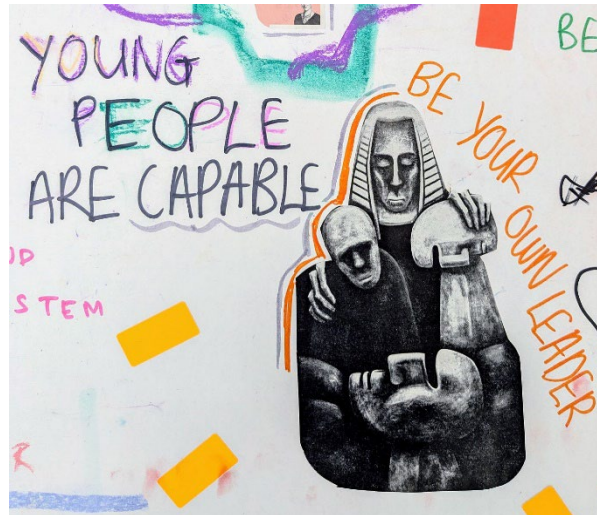 YOUNG
PEOPLE
ARE CAPABLE
BE YOUR OWN LEADER
BE
STEM